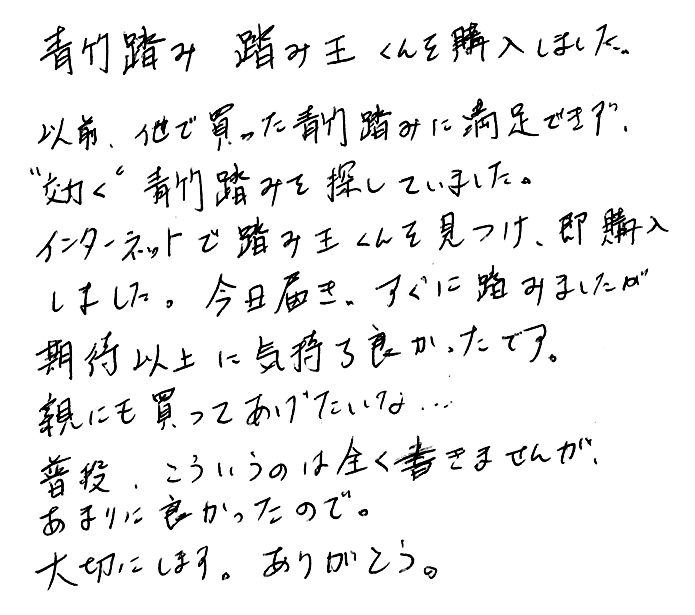 青竹踏み 踏み王くんを購入しました。
以前、他で買った青竹踏みに満足できず、
"効く"青竹踏みを探していました。
インターネットで踏み王くんを見つけ、即購入
しました。今日届き、すぐに踏みましたが
期待以上に気持ち良かったです。
親にも買ってあげたいな…
普段、こういうのは全く書きませんが、
あまりに良かったので。
大切にします。ありがとう。